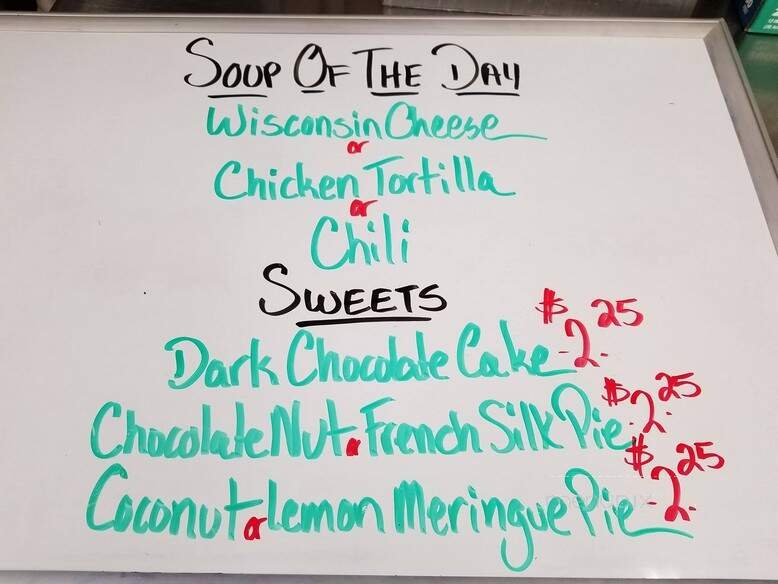 Soup Of The Day
Wisconsin Cheese
or
Chicken Tortilla
or
Chili
Sweets
Dark Chocolate Cake -2.25$
Chocolate Nut or French Silk Pie $2.25
Coconut or Lemon Meringue Pie $-2.25